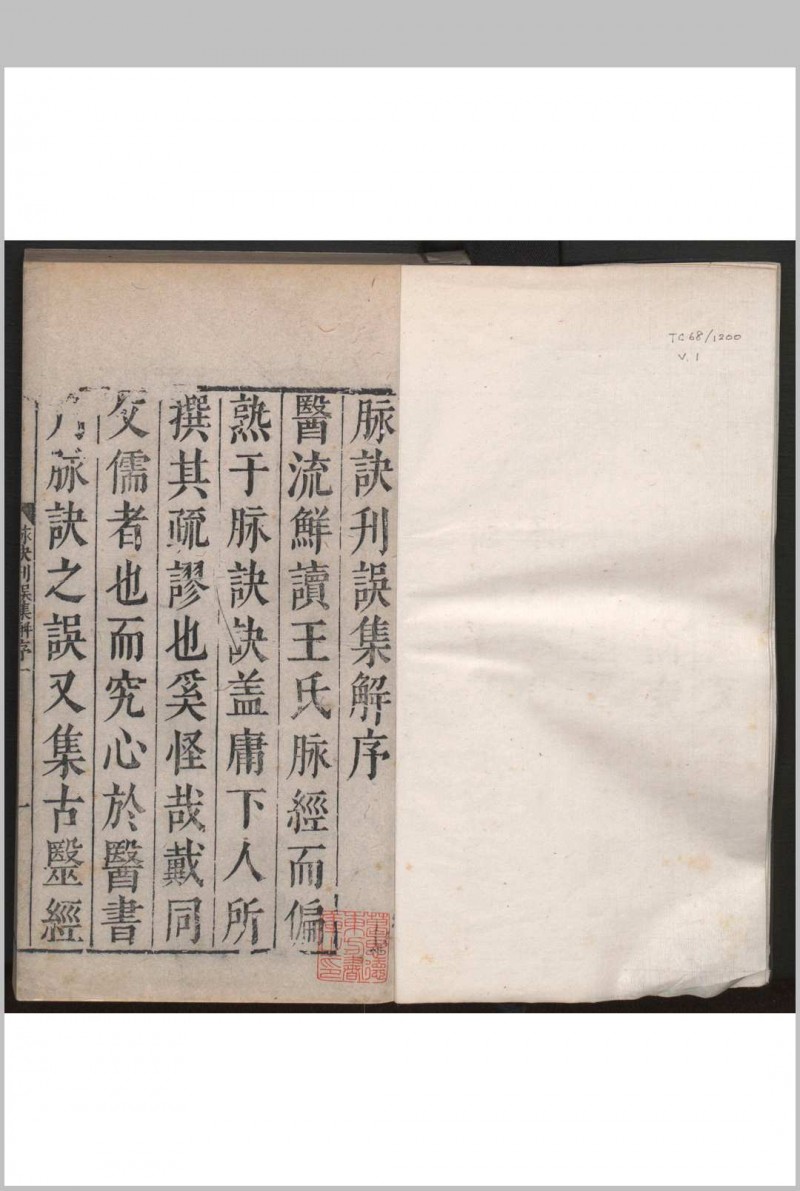 脉訣刋誤集解序
醫流鮮讀王氏脉經而偏
熟于脉訣訣盖庸下人所
撰其疏謬也奚怪哉戴同
父儒者也而究心於醫書
脉訣之誤又集古毉經
脉訣刋誤集解序
一
TC 68/1200
V. 1